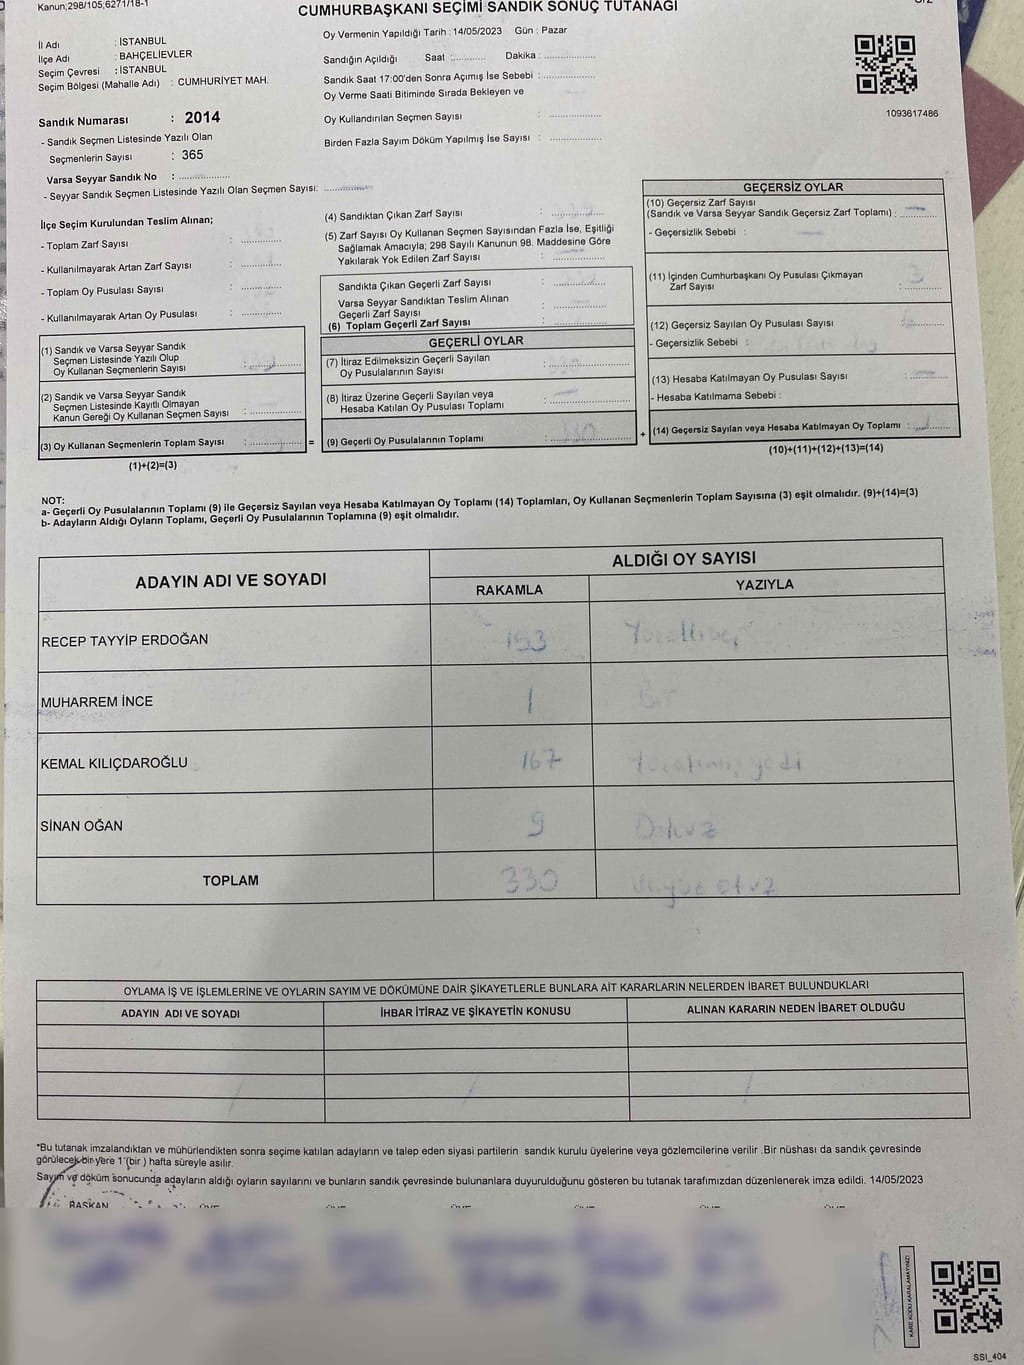 Kanun;298/105;6271/18-1
CUMHURBAŞKANI SEÇİMİ SANDIK SONUÇ TUTANAĞI
İl Adı : İSTANBUL
İlçe Adı : BAHÇELİEVLER
Seçim Çevresi : İSTANBUL
Seçim Bölgesi (Mahalle Adı) : CUMHURİYET MAH.
Sandık Numarası : 2014
- Sandık Seçmen Listesinde Yazılı Olan
Seçmenlerin Sayısı : 365
Varsa Seyyar Sandık No :
- Seyyar Sandık Seçmen Listesinde Yazılı Olan Seçmen Sayısı:
Oy Vermenin Yapıldığı Tarih : 14/05/2023 Gün : Pazar
Sandığın Açıldığı Saat : Dakika :
Sandık Saat 17:00'den Sonra Açımış İse Sebebi :
Oy Verme Saati Bitiminde Sırada Bekleyen ve
Oy Kullandırılan Seçmen Sayısı :
Birden Fazla Sayım Döküm Yapılmış İse Sayısı :
1093617486
İlçe Seçim Kurulundan Teslim Alınan;
- Toplam Zarf Sayısı :
- Kullanılmayarak Artan Zarf Sayısı :
- Toplam Oy Pusulası Sayısı :
- Kullanılmayarak Artan Oy Pusulası :
(1) Sandık ve Varsa Seyyar Sandık
Seçmen Listesinde Yazılı Olup
Oy Kullanan Seçmenlerin Sayısı :
(2) Sandık ve Varsa Seyyar Sandık
Seçmen Listesinde Kayıtlı Olmayan
Kanun Gereği Oy Kullanan Seçmen Sayısı :
(3) Oy Kullanan Seçmenlerin Toplam Sayısı :
(1)+(2)=(3)
(4) Sandıktan Çıkan Zarf Sayısı :
(5) Zarf Sayısı Oy Kullanan Seçmen Sayısından Fazla İse, Eşitliği
Sağlamak Amacıyla; 298 Sayılı Kanunun 98. Maddesine Göre
Yakılarak Yok Edilen Zarf Sayısı :
Sandıkta Çıkan Geçerli Zarf Sayısı :
Varsa Seyyar Sandıktan Teslim Alınan
Geçerli Zarf Sayısı :
(6) Toplam Geçerli Zarf Sayısı :
GEÇERLİ OYLAR
(7) İtiraz Edilmeksizin Geçerli Sayılan
Oy Pusulalarının Sayısı :
(8) İtiraz Üzerine Geçerli Sayılan veya
Hesaba Katılan Oy Pusulası Toplamı :
= (9) Geçerli Oy Pusulalarının Toplamı : 330
GEÇERSİZ OYLAR
(10) Geçersiz Zarf Sayısı
(Sandık ve Varsa Seyyar Sandık Geçersiz Zarf Toplamı) :
- Geçersizlik Sebebi :
(11) İçinden Cumhurbaşkanı Oy Pusulası Çıkmayan
Zarf Sayısı : 3
(12) Geçersiz Sayılan Oy Pusulası Sayısı :
- Geçersizlik Sebebi :
(13) Hesaba Katılmayan Oy Pusulası Sayısı :
- Hesaba Katılmama Sebebi :
+ (14) Geçersiz Sayılan veya Hesaba Katılmayan Oy Toplamı :
(10)+(11)+(12)+(13)=(14)
NOT:
a- Geçerli Oy Pusulalarının Toplamı (9) ile Geçersiz Sayılan veya Hesaba Katılmayan Oy Toplamı (14) Toplamları, Oy Kullanan Seçmenlerin Toplam Sayısına (3) eşit olmalıdır. (9)+(14)=(3)
b- Adayların Aldığı Oyların Toplamı, Geçerli Oy Pusulalarının Toplamına (9) eşit olmalıdır.
ADAYIN ADI VE SOYADI
ALDIĞI OY SAYISI
RAKAMLA YAZIYLA
RECEP TAYYİP ERDOĞAN 153 Yüzelliüç
MUHARREM İNCE 1 Bir
KEMAL KILIÇDAROĞLU 167 Yüzaltmış yedi
SİNAN OĞAN 9 Dokuz
TOPLAM 330 Üçyüz otuz
OYLAMA İŞ VE İŞLEMLERİNE VE OYLARIN SAYIM VE DÖKÜMÜNE DAİR ŞİKAYETLERLE BUNLARA AİT KARARLARIN NELERDEN İBARET BULUNDUKLARI
ADAYIN ADI VE SOYADI İHBAR İTİRAZ VE ŞİKAYETİN KONUSU ALINAN KARARIN NEDEN İBARET OLDUĞU
*Bu tutanak imzalandıktan ve mühürlendikten sonra seçime katılan adayların ve talep eden siyasi partilerin sandık kurulu üyelerine veya gözlemcilerine verilir .Bir nüshası da sandık çevresinde
görülecek bir yere 1 (bir ) hafta süreyle asılır.
Sayım ve döküm sonucunda adayların aldığı oyların sayılarını ve bunların sandık çevresinde bulunanlara duyurulduğunu gösteren bu tutanak tarafımızdan düzenlenerek imza edildi. 14/05/2023
BAŞKAN
KARE KODU KARALAMAYINIZ!
SSİ_404